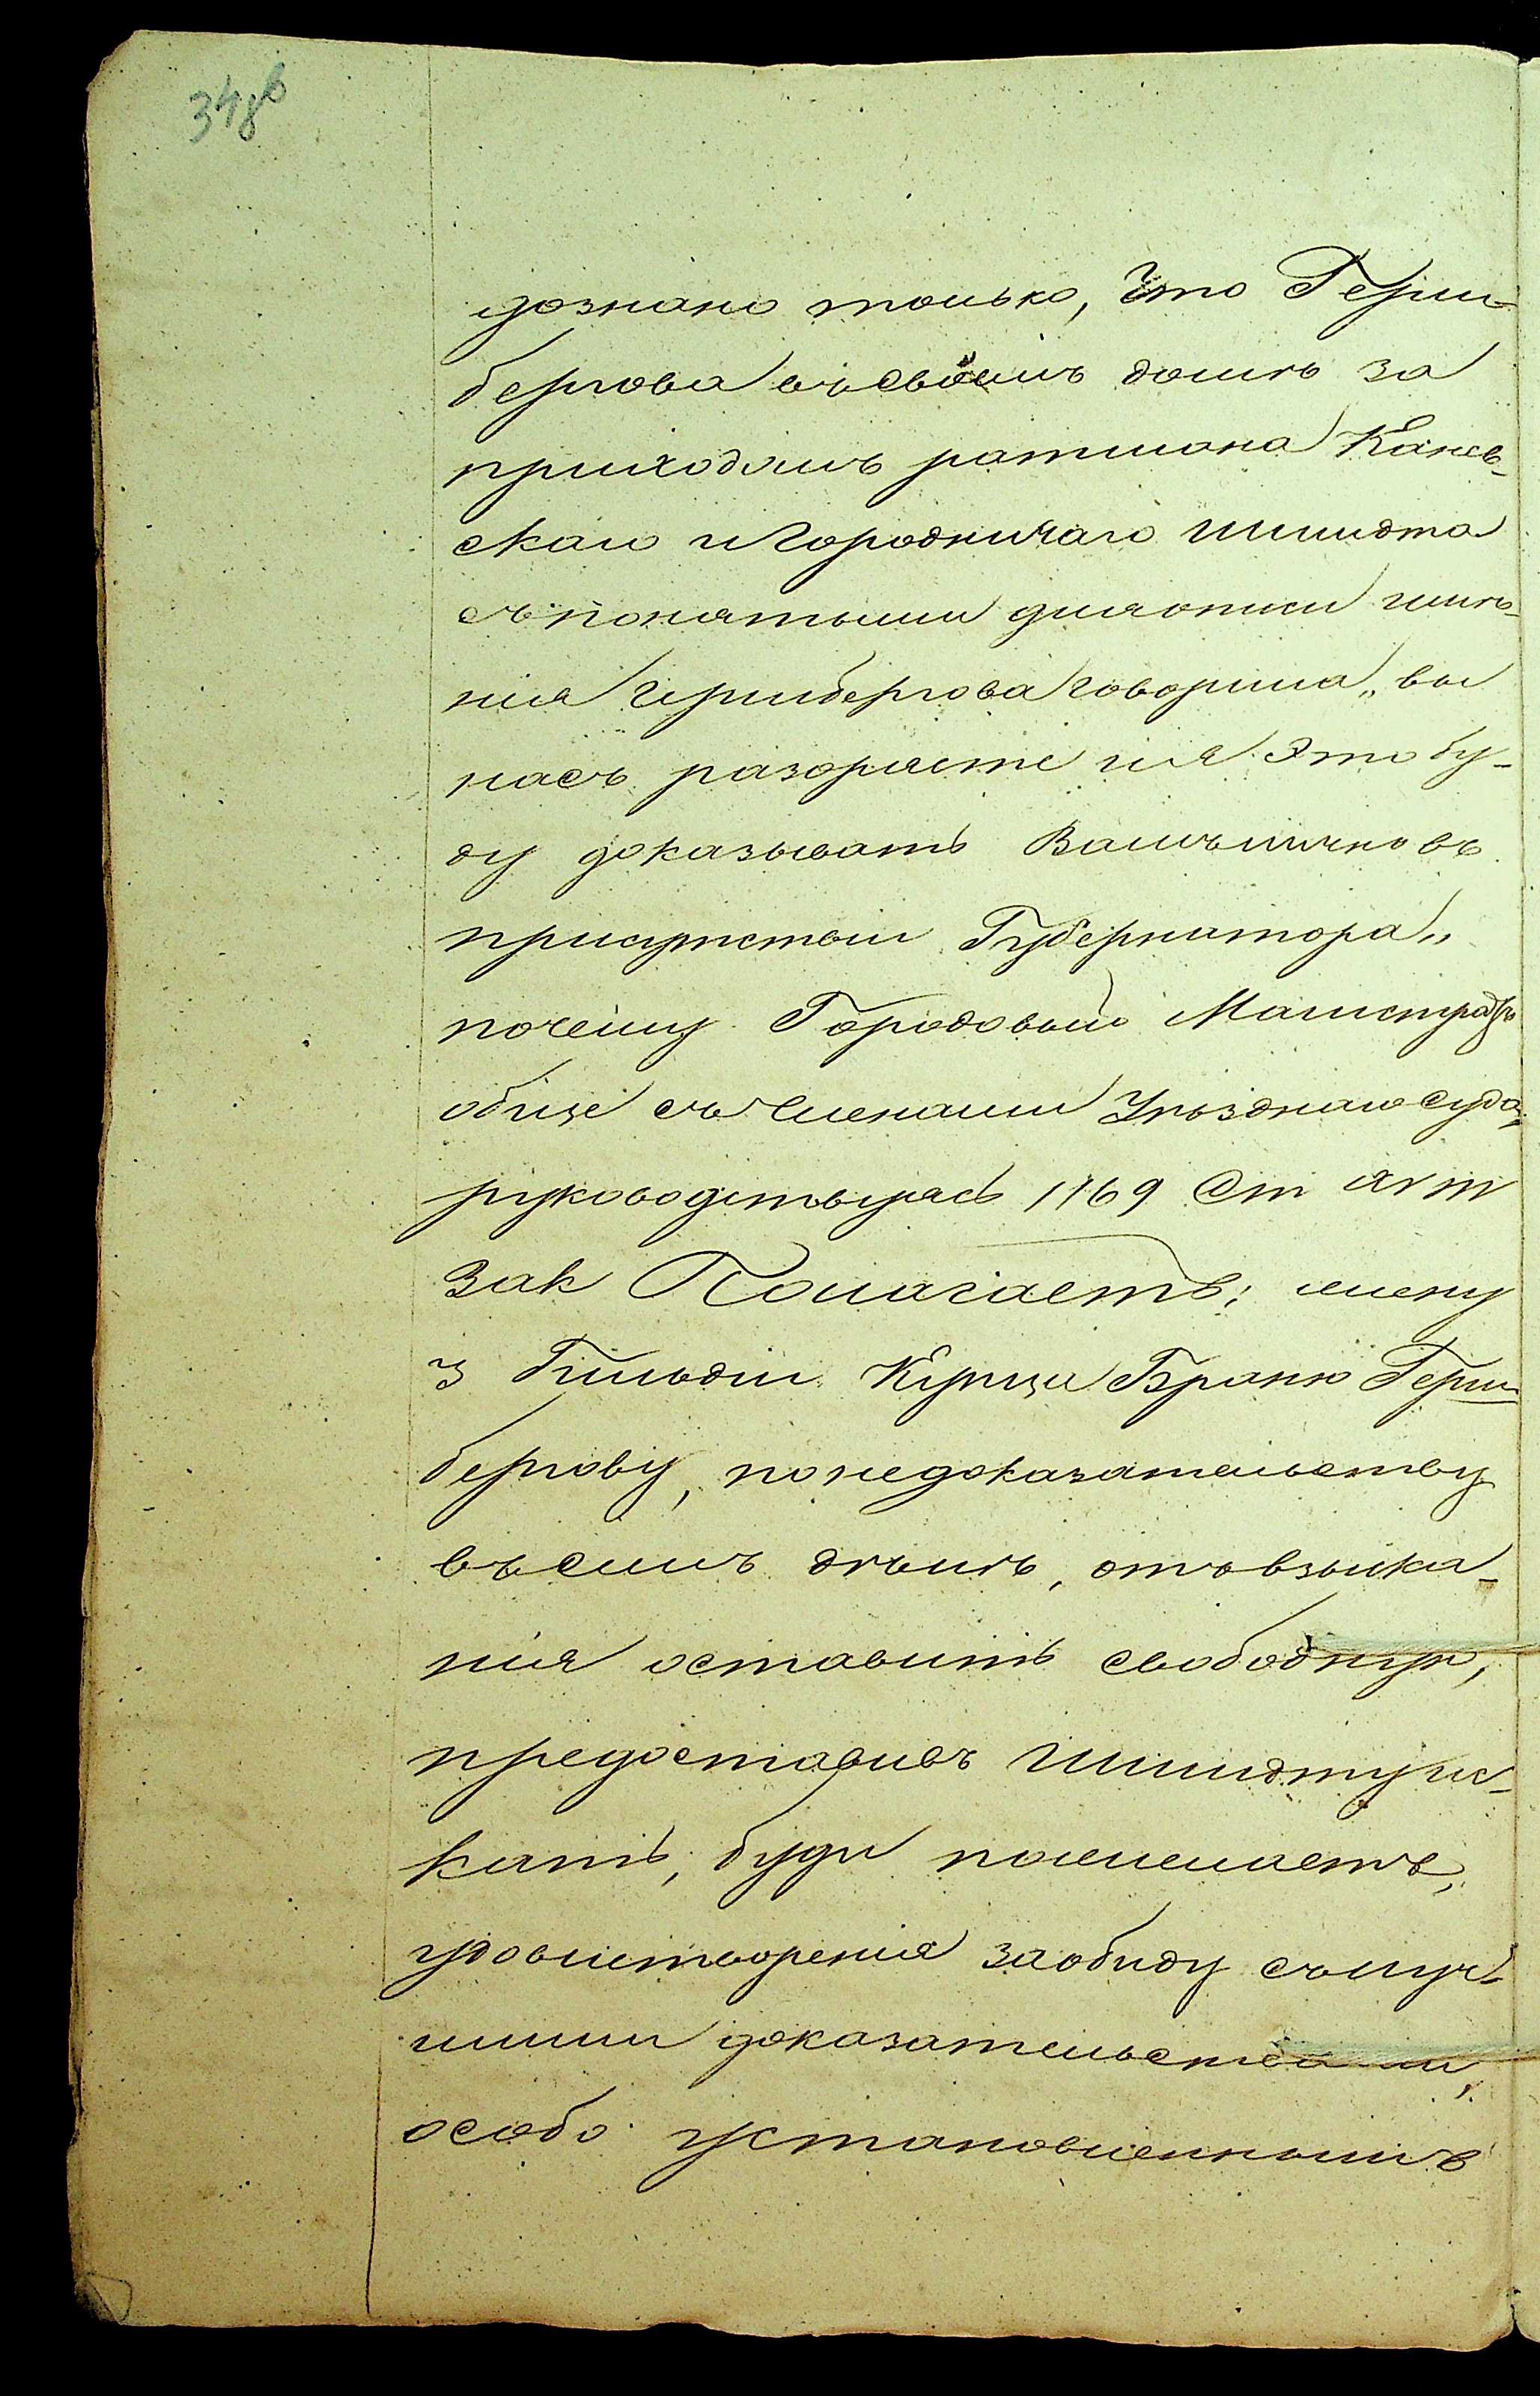 348в
дознано только, что Герш-
бергова въ своемъ домѣ за
приходомъ ратмана Канев-
скаго и Городничаго Шмидта
съ понятыми для описи имѣ-
нія Гершбергова говорила „вы
насъ разоряете и я это бу-
ду доказывать Вамъ лично въ
присутствіи Губернатора„
почему Городовый Магистратъ
обще съ Членами Уѣзднаго Суда,
руководствуясь 1169 Ст XV т
Зак Полагаетъ: жену
3 Гильдіи Купца Браню Герш-
бергову, по недоказательству
въ семъ дѣлѣ, отъ взыска-
нія оставить свободную,
предоставивъ Шмидту ис-
кать, буде пожелаетъ,
удовлетворенія за обиду съ луч-
шими доказательствами,
особо установленнымъ